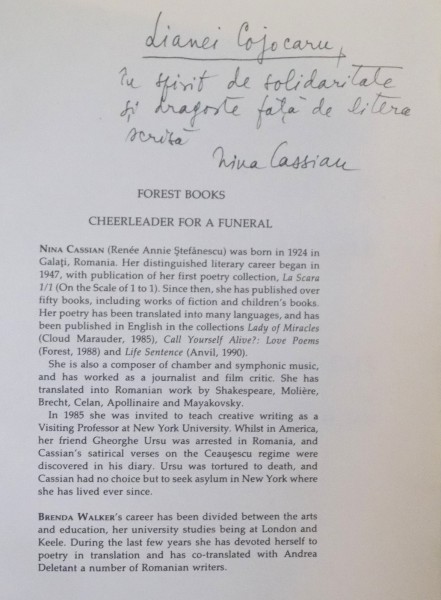 Lianei Cojocaru,
În spirit de solidaritate
și dragoste față de litera
scrisă
Nina Cassian
FOREST BOOKS
CHEERLEADER FOR A FUNERAL
NINA CASSIAN (Renée Annie Ștefănescu) was born in 1924 in
Galați, Romania. Her distinguished literary career began in
1947, with publication of her first poetry collection, La Scara
1/1 (On the Scale of 1 to 1). Since then, she has published over
fifty books, including works of fiction and children's books.
Her poetry has been translated into many languages, and has
been published in English in the collections Lady of Miracles
(Cloud Marauder, 1985), Call Yourself Alive?: Love Poems
(Forest, 1988) and Life Sentence (Anvil, 1990).
She is also a composer of chamber and symphonic music,
and has worked as a journalist and film critic. She has
translated into Romanian work by Shakespeare, Molière,
Brecht, Celan, Apollinaire and Mayakovsky.
In 1985 she was invited to teach creative writing as a
Visiting Professor at New York University. Whilst in America,
her friend Gheorghe Ursu was arrested in Romania, and
Cassian's satirical verses on the Ceaușescu regime were
discovered in his diary. Ursu was tortured to death, and
Cassian had no choice but to seek asylum in New York where
she has lived ever since.
BRENDA WALKER's career has been divided between the arts
and education, her university studies being at London and
Keele. During the last few years she has devoted herself to
poetry in translation and has co-translated with Andrea
Deletant a number of Romanian writers.